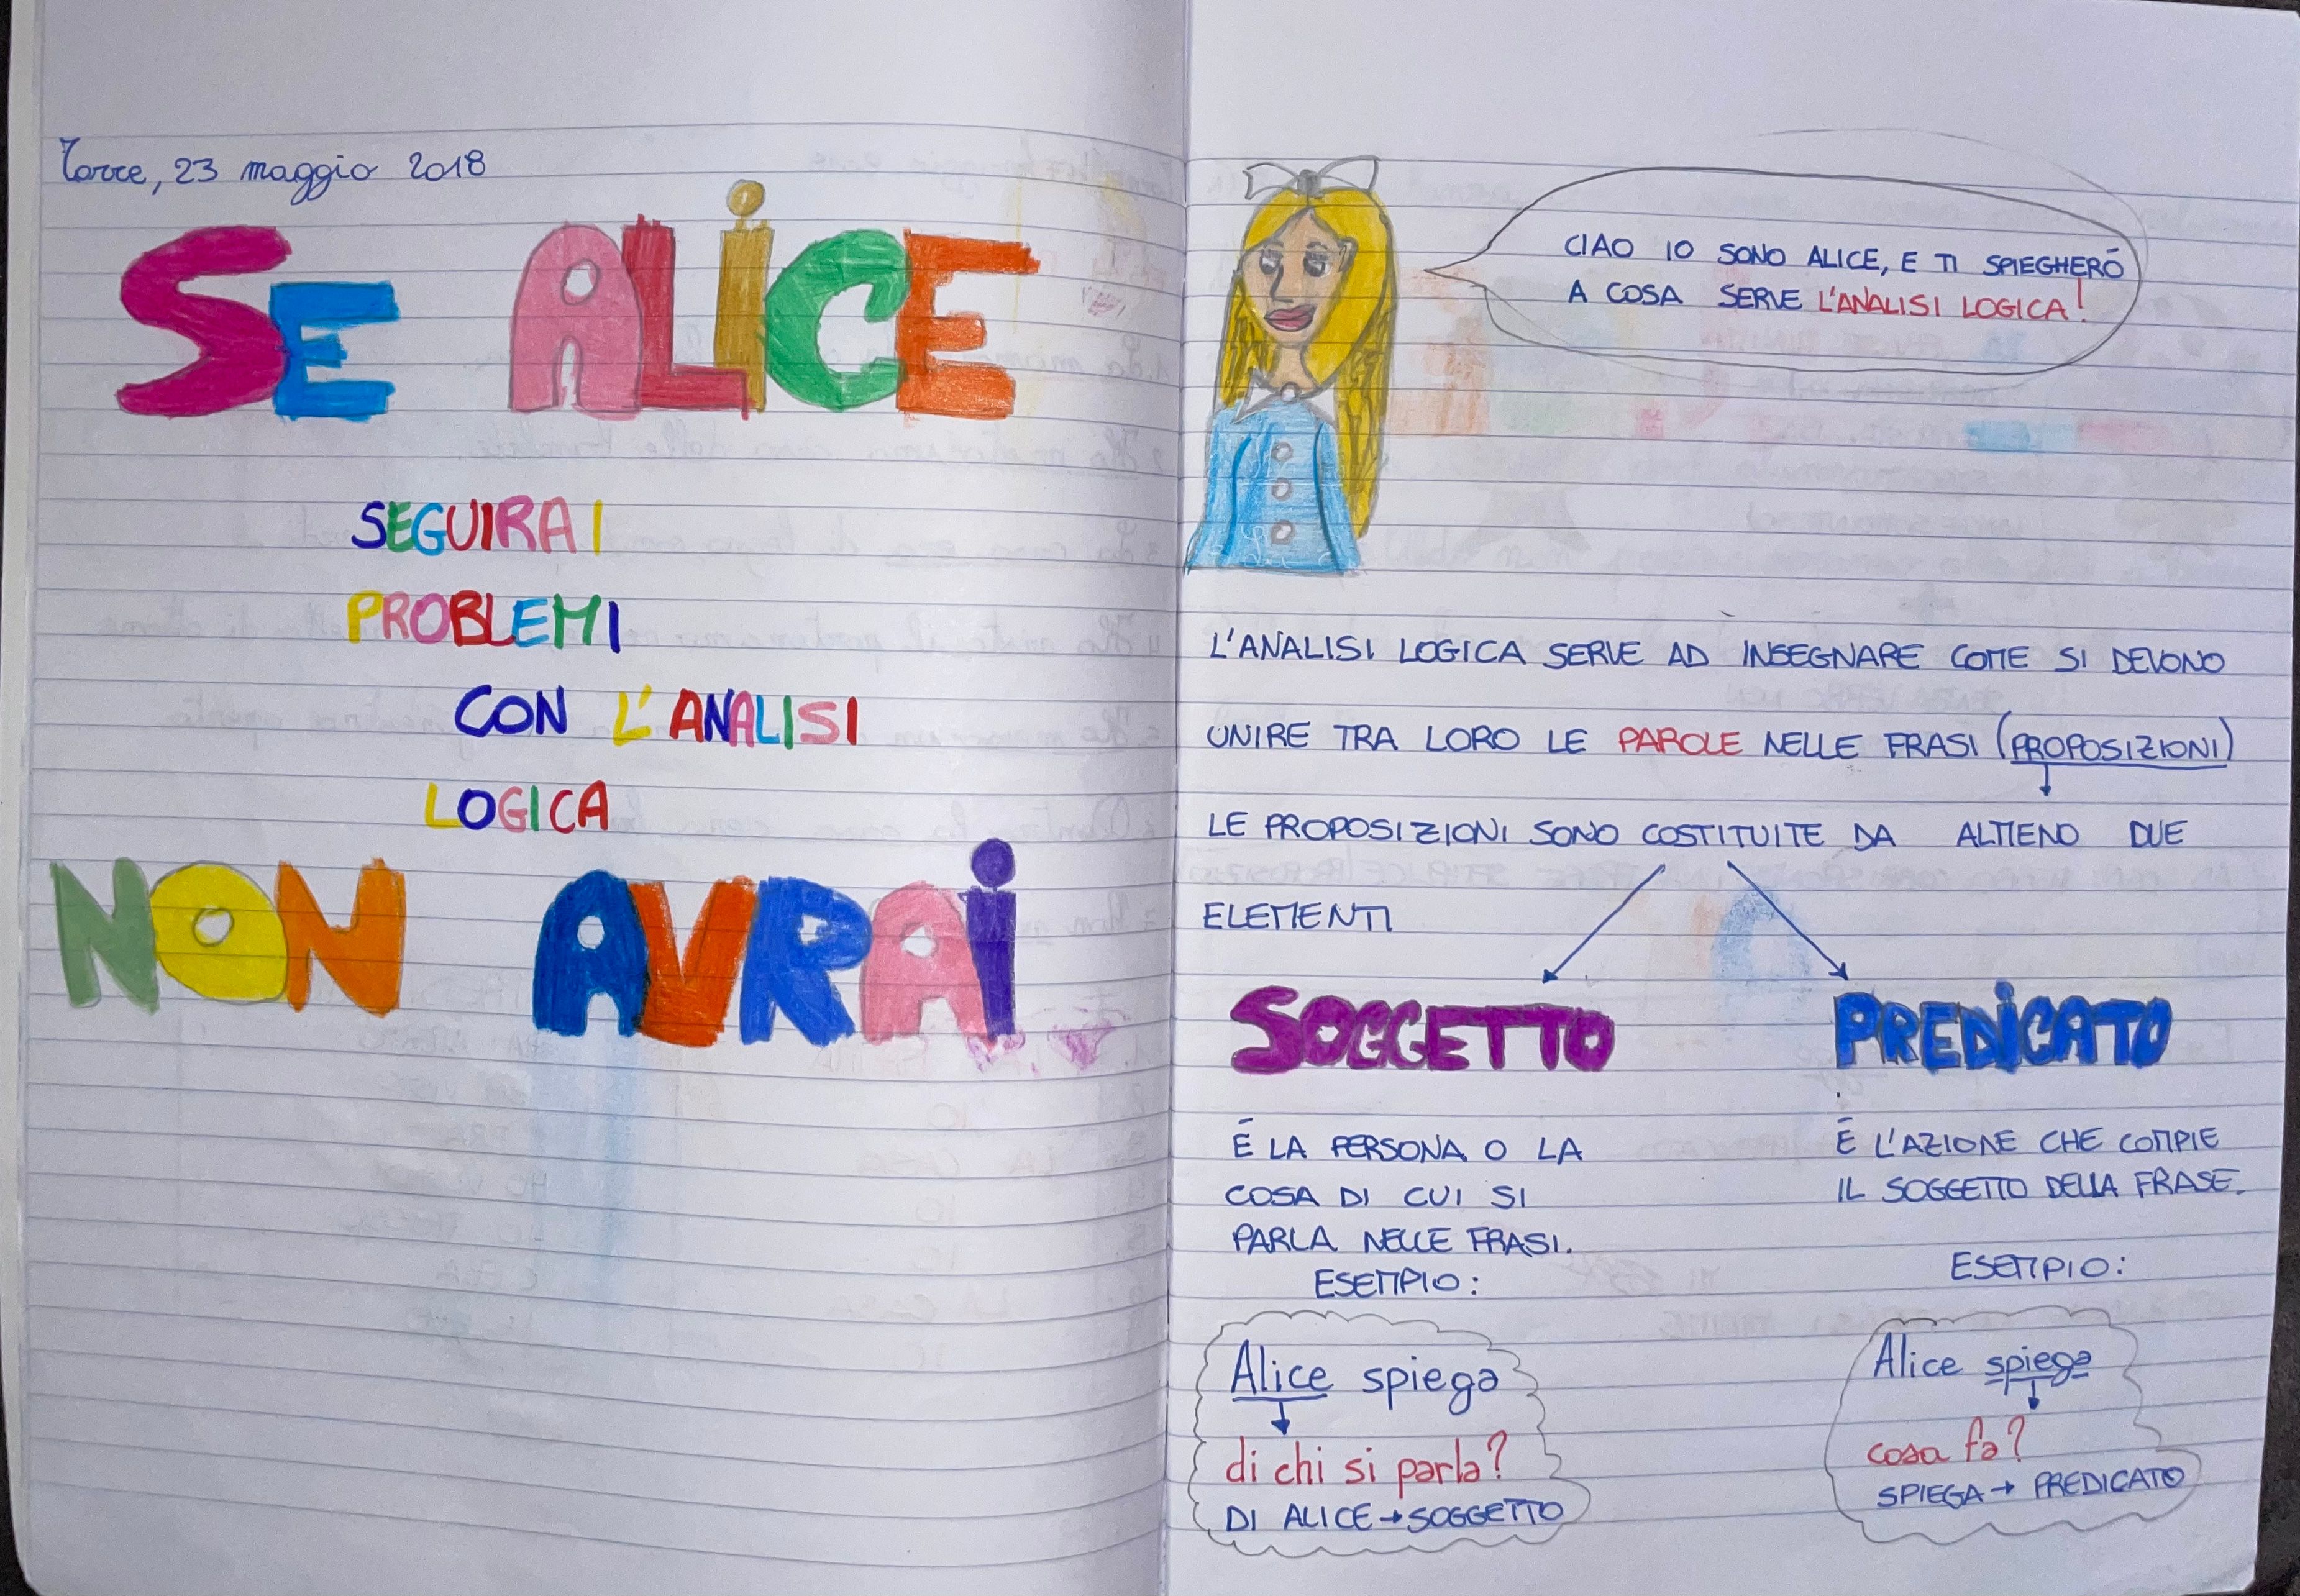 Torre, 23 maggio 2018
SE ALiCE
SEGUIRAI
PROBLEMI
CON L'ANALISI
LOGICA
NON AVRAi
CIAO IO SONO ALICE, E TI SPIEGHERÓ
A COSA SERVE L'ANALISI LOGICA!
L'ANALISI LOGICA SERVE AD INSEGNARE COME SI DEVONO
UNIRE TRA LORO LE PAROLE NELLE FRASI (PROPOSIZIONI)
LE PROPOSIZIONI SONO COSTITUITE DA ALMENO DUE
ELEMENTI
SOGGETTO
É LA PERSONA O LA
COSA DI CUI SI
PARLA NELLE FRASI.
ESEMPIO:
Alice spiega
di chi si parla?
DI ALICE → SOGGETTO
PREDiCATO
É L'AZIONE CHE COMPIE
IL SOGGETTO DELLA FRASE.
ESEMPIO:
Alice spiega
cosa fa?
SPIEGA → PREDICATO